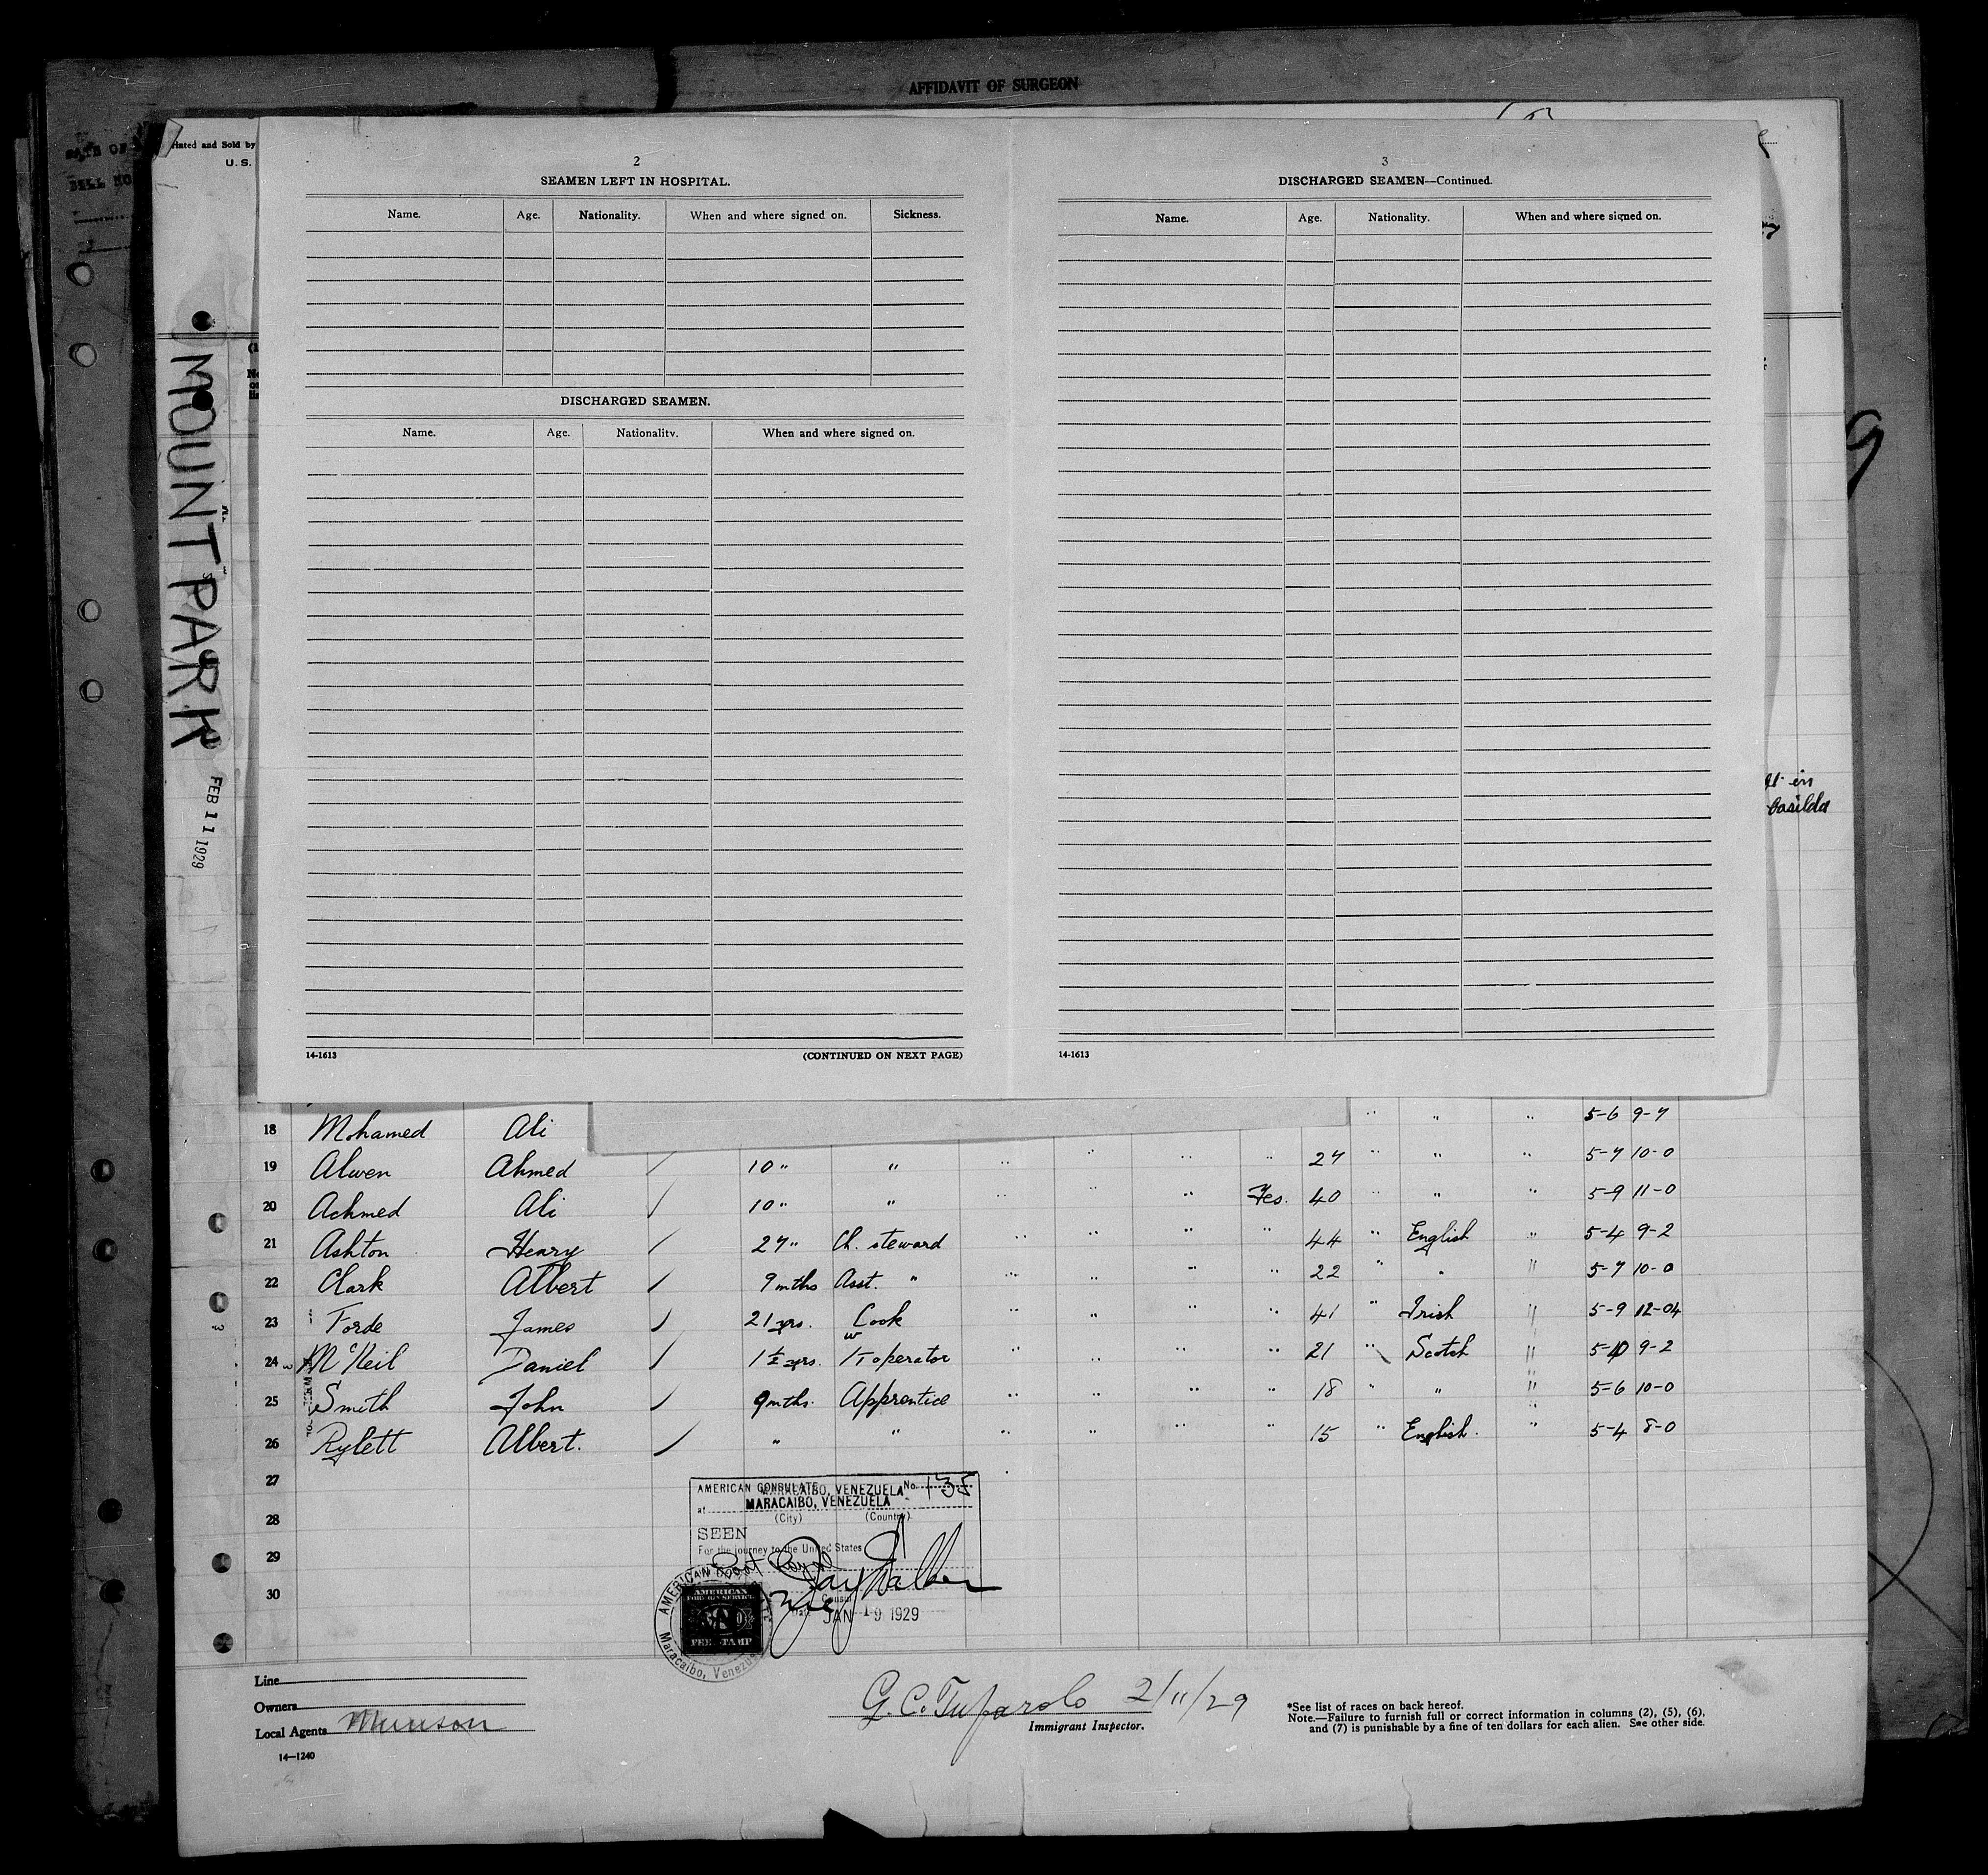 AFFIDAVIT OF SURGEON
Printed and Sold by
U. S.
MOUNT PARK
FEB 11 1929
2
SEAMEN LEFT IN HOSPITAL.
Name. Age. Nationality. When and where signed on. Sickness.
DISCHARGED SEAMEN.
Name. Age. Nationality. When and where signed on.
14-1613 (CONTINUED ON NEXT PAGE)
3
DISCHARGED SEAMEN—Continued.
Name. Age. Nationality. When and where signed on.
14-1613
in
Casilda
18 Mohamed Ali " " " 5-6 9-7
19 Alwen Ahmed / 10 " " " " " " 27 " " " 5-7 10-0
20 Achmed Ali / 10 " " " " " Yes. 40 " " " 5-9 11-0
21 Ashton Henry / 27 " Ch. steward " " " " 44 " English " 5-4 9-2
22 Clark Albert / 9 mths Asst. " " " " " 22 " " " 5-7 10-0
23 Forde James / 21 yrs. Cook " " " " 41 " Irish " 5-9 12-04
24 McNeil Daniel / 1½ yrs. W/T operator " " " " 21 " Scotch " 5-10 9-2
25 Smith John / 9 mths. Apprentice " " " " 18 " " " 5-6 10-0
26 Rylett Albert. / " " " " " " 15 " English. " 5-4 8-0
27
28
29
30
AMERICAN CONSULATE No. 135
at MARACAIBO, VENEZUELA
MARACAIBO, VENEZUELA
(City) (Country)
SEEN
For the journey to the United States
Consul
Date JAN 19 1929
AMERICAN
FOREIGN SERVICE
FEE STAMP
Maracaibo, Venezuela
Line
Owners
Local Agents Munson
14—1240
G. C. Tufarolo 2/11/29
Immigrant Inspector.
*See list of races on back hereof.
Note.—Failure to furnish full or correct information in columns (2), (5), (6),
and (7) is punishable by a fine of ten dollars for each alien. See other side.